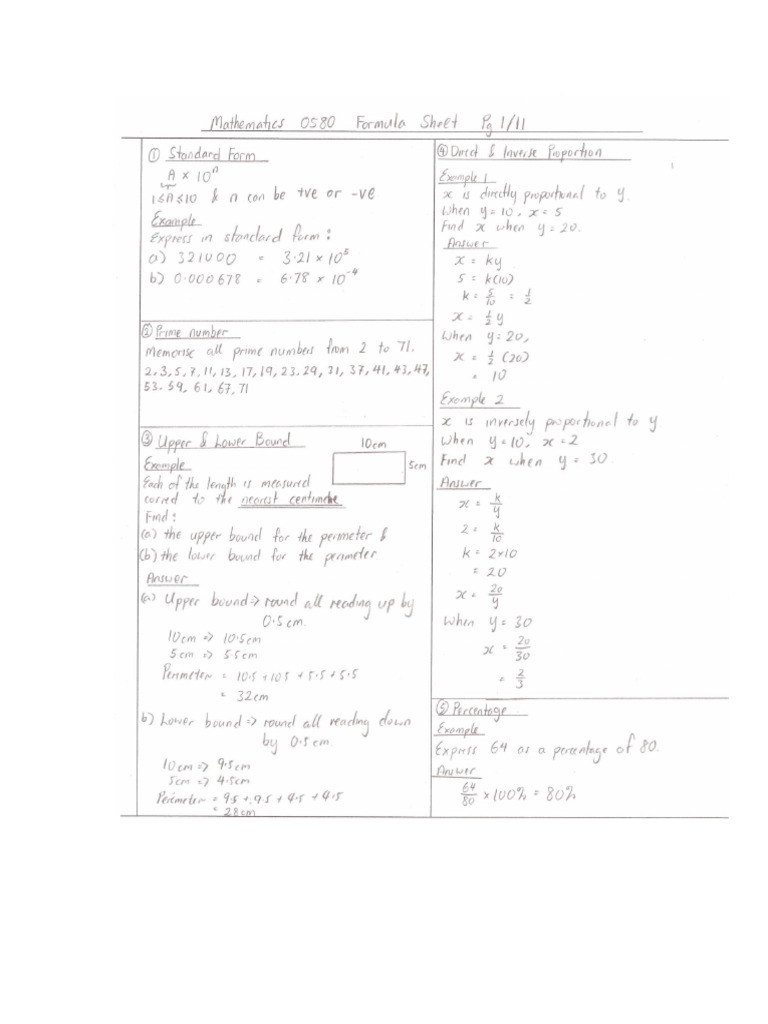 Mathematics 0580 Formula Sheet Pg 1/11
① Standard Form
A × 10ⁿ
1≤A≤10 & n can be +ve or -ve
Example
Express in standard form:
a) 321000 = 3.21 × 10⁵
b) 0.000678 = 6.78 × 10⁻⁴
② Prime number
Memorise all prime numbers from 2 to 71.
2,3,5,7,11,13,17,19,23,29,31,37,41,43,47,
53,59,61,67,71
③ Upper & Lower Bound
10cm
5cm
Example
Each of the length is measured
correct to the nearest centimetre
Find:
(a) the upper bound for the perimeter &
(b) the lower bound for the perimeter
Answer
(a) Upper bound => round all reading up by
0.5cm.
10cm => 10.5cm
5cm => 5.5cm
Perimeter = 10.5 + 10.5 + 5.5 + 5.5
= 32cm
b) Lower bound => round all reading down
by 0.5cm.
10cm => 9.5cm
5cm => 4.5cm
Perimeter = 9.5 + 9.5 + 4.5 + 4.5
= 28cm
④ Direct & Inverse Proportion
Example 1
x is directly proportional to y.
When y=10, x=5
Find x when y=20.
Answer
x = ky
5 = k(10)
k = 5/10 = 1/2
x = 1/2 y
When y=20,
x = 1/2 (20)
= 10
Example 2
x is inversely proportional to y
When y=10, x=2
Find x when y = 30
Answer
x = k/y
2 = k/10
k = 2×10
= 20
x = 20/y
When y = 30
x = 20/30
= 2/3
⑤ Percentage
Example
Express 64 as a percentage of 80.
Answer
64/80 × 100% = 80%